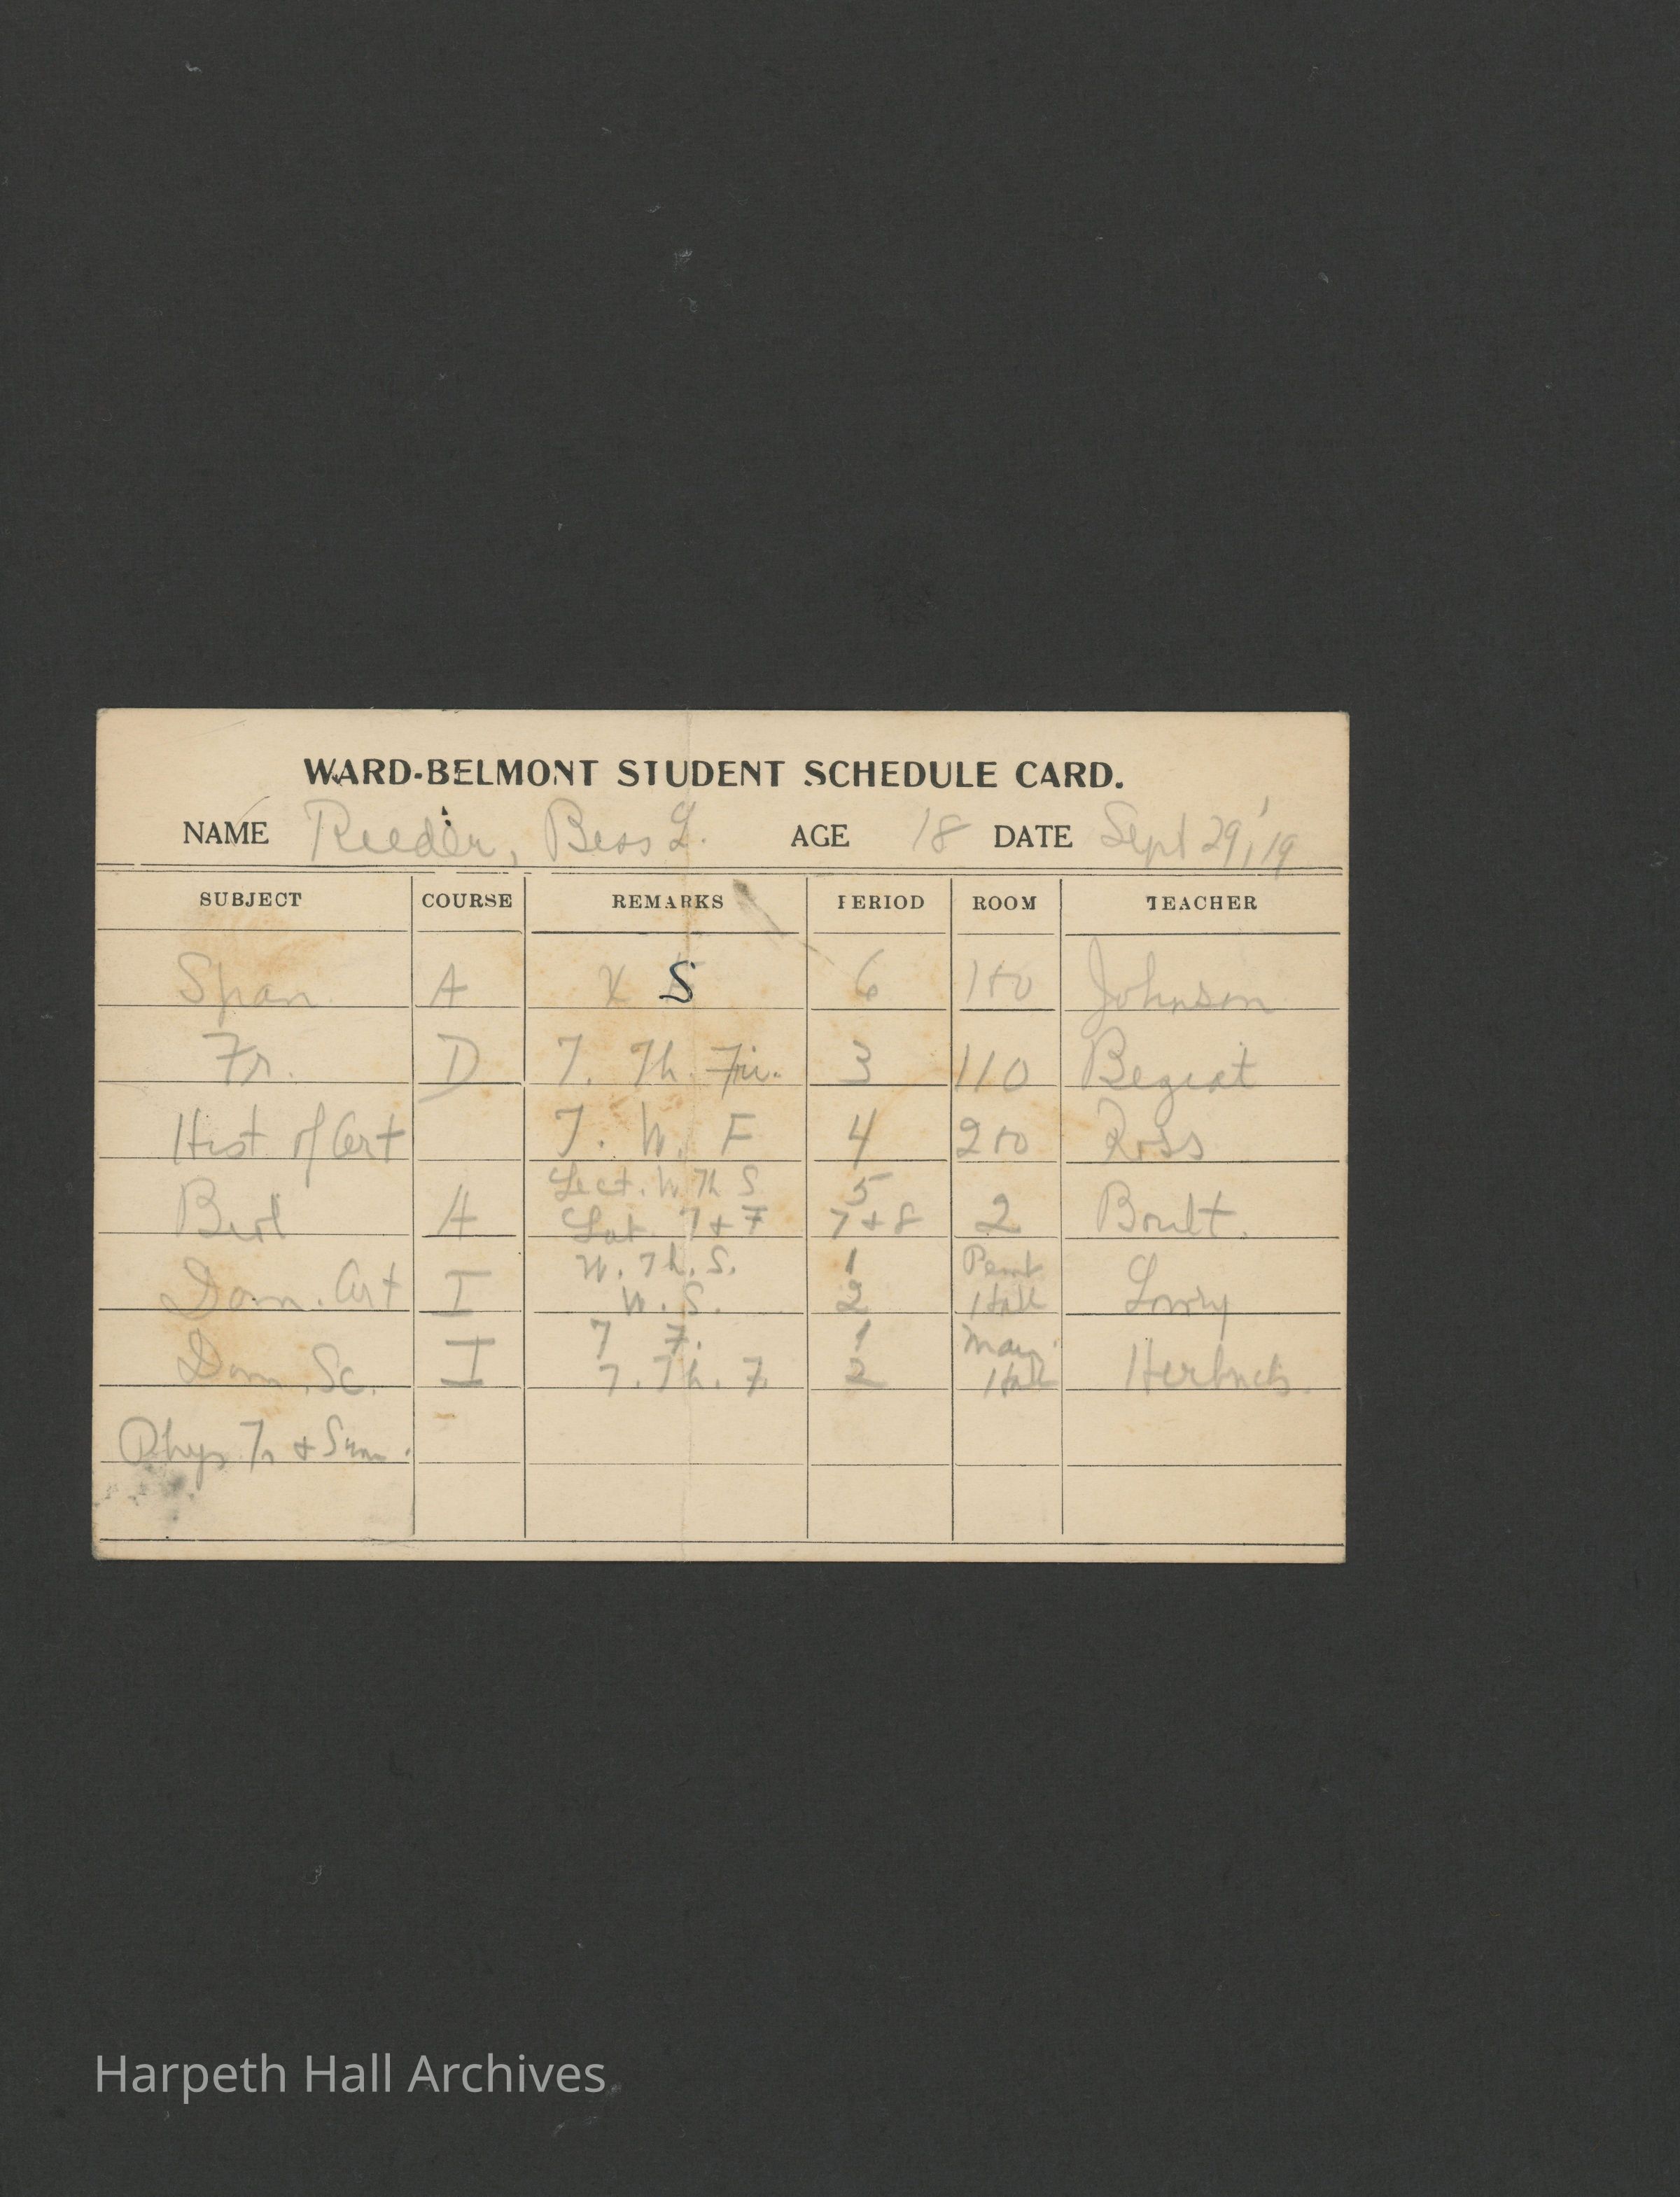 WARD-BELMONT STUDENT SCHEDULE CARD.
NAME Reeder, Bess L. AGE 18 DATE Sept 29, '19
SUBJECT COURSE REMARKS PERIOD ROOM TEACHER
Span A X S 6 100 Johnson
Fr. D T. Th. Fri. 3 110 Begeat
Hist of Art T. W. F 4 200 Ross
Lect. W Th S 5
Biol A Lab. T + F 7 + 8 2 Boult.
W. Th. S. 1 Pem
Dom. Art I W. S. 2 Hall Lowry
T F. 1
Dom. Sc. I T. Th. F. 2 Hall
Phys Tr + Swm.
Harpeth Hall Archives